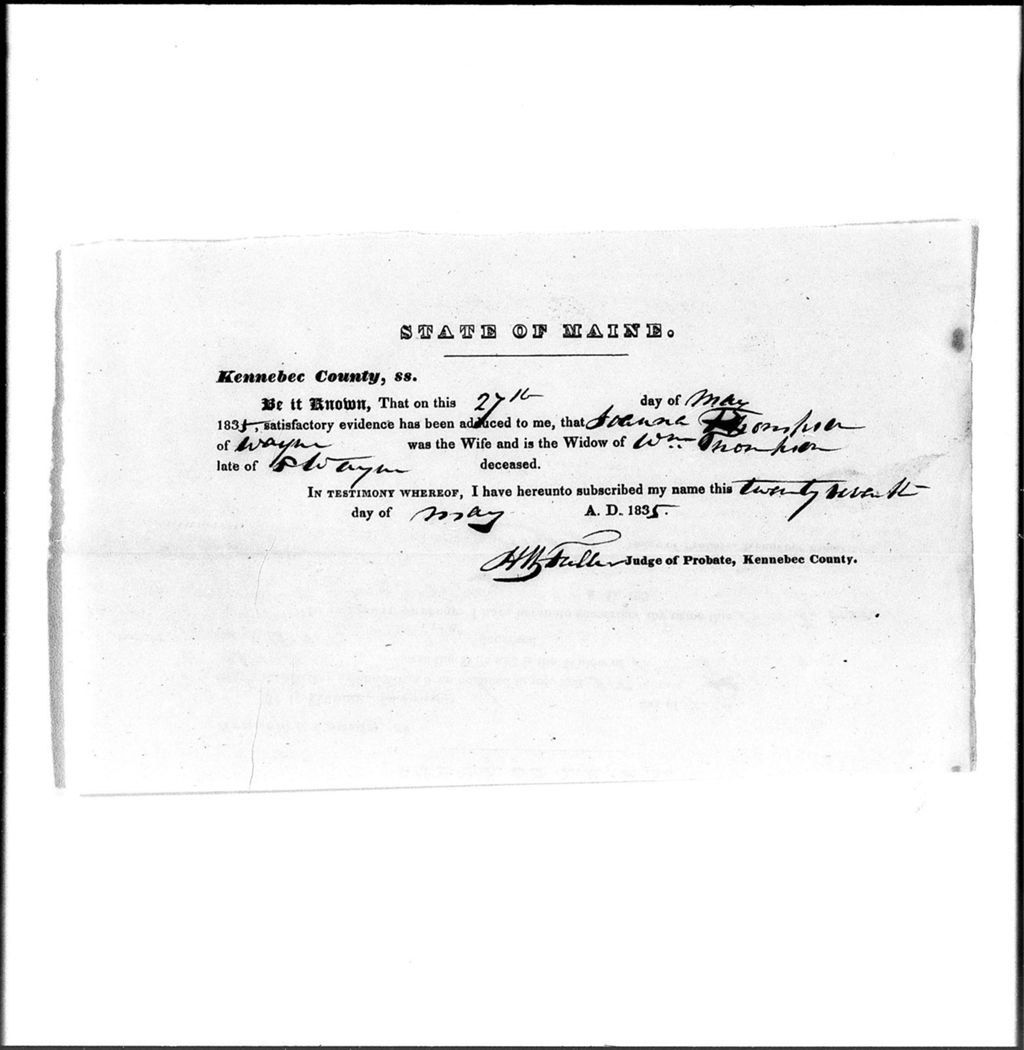 STATE OF MAINE.
Kennebec County, ss.
Be it Known, That on this 27th day of May
1835, satisfactory evidence has been adduced to me, that Joanna Thompson
of Wayne was the Wife and is the Widow of Wm Thompson
late of Wayne deceased.
IN TESTIMONY WHEREOF, I have hereunto subscribed my name this twenty seventh
day of May A. D. 1835.
Fuller Judge of Probate, Kennebec County.